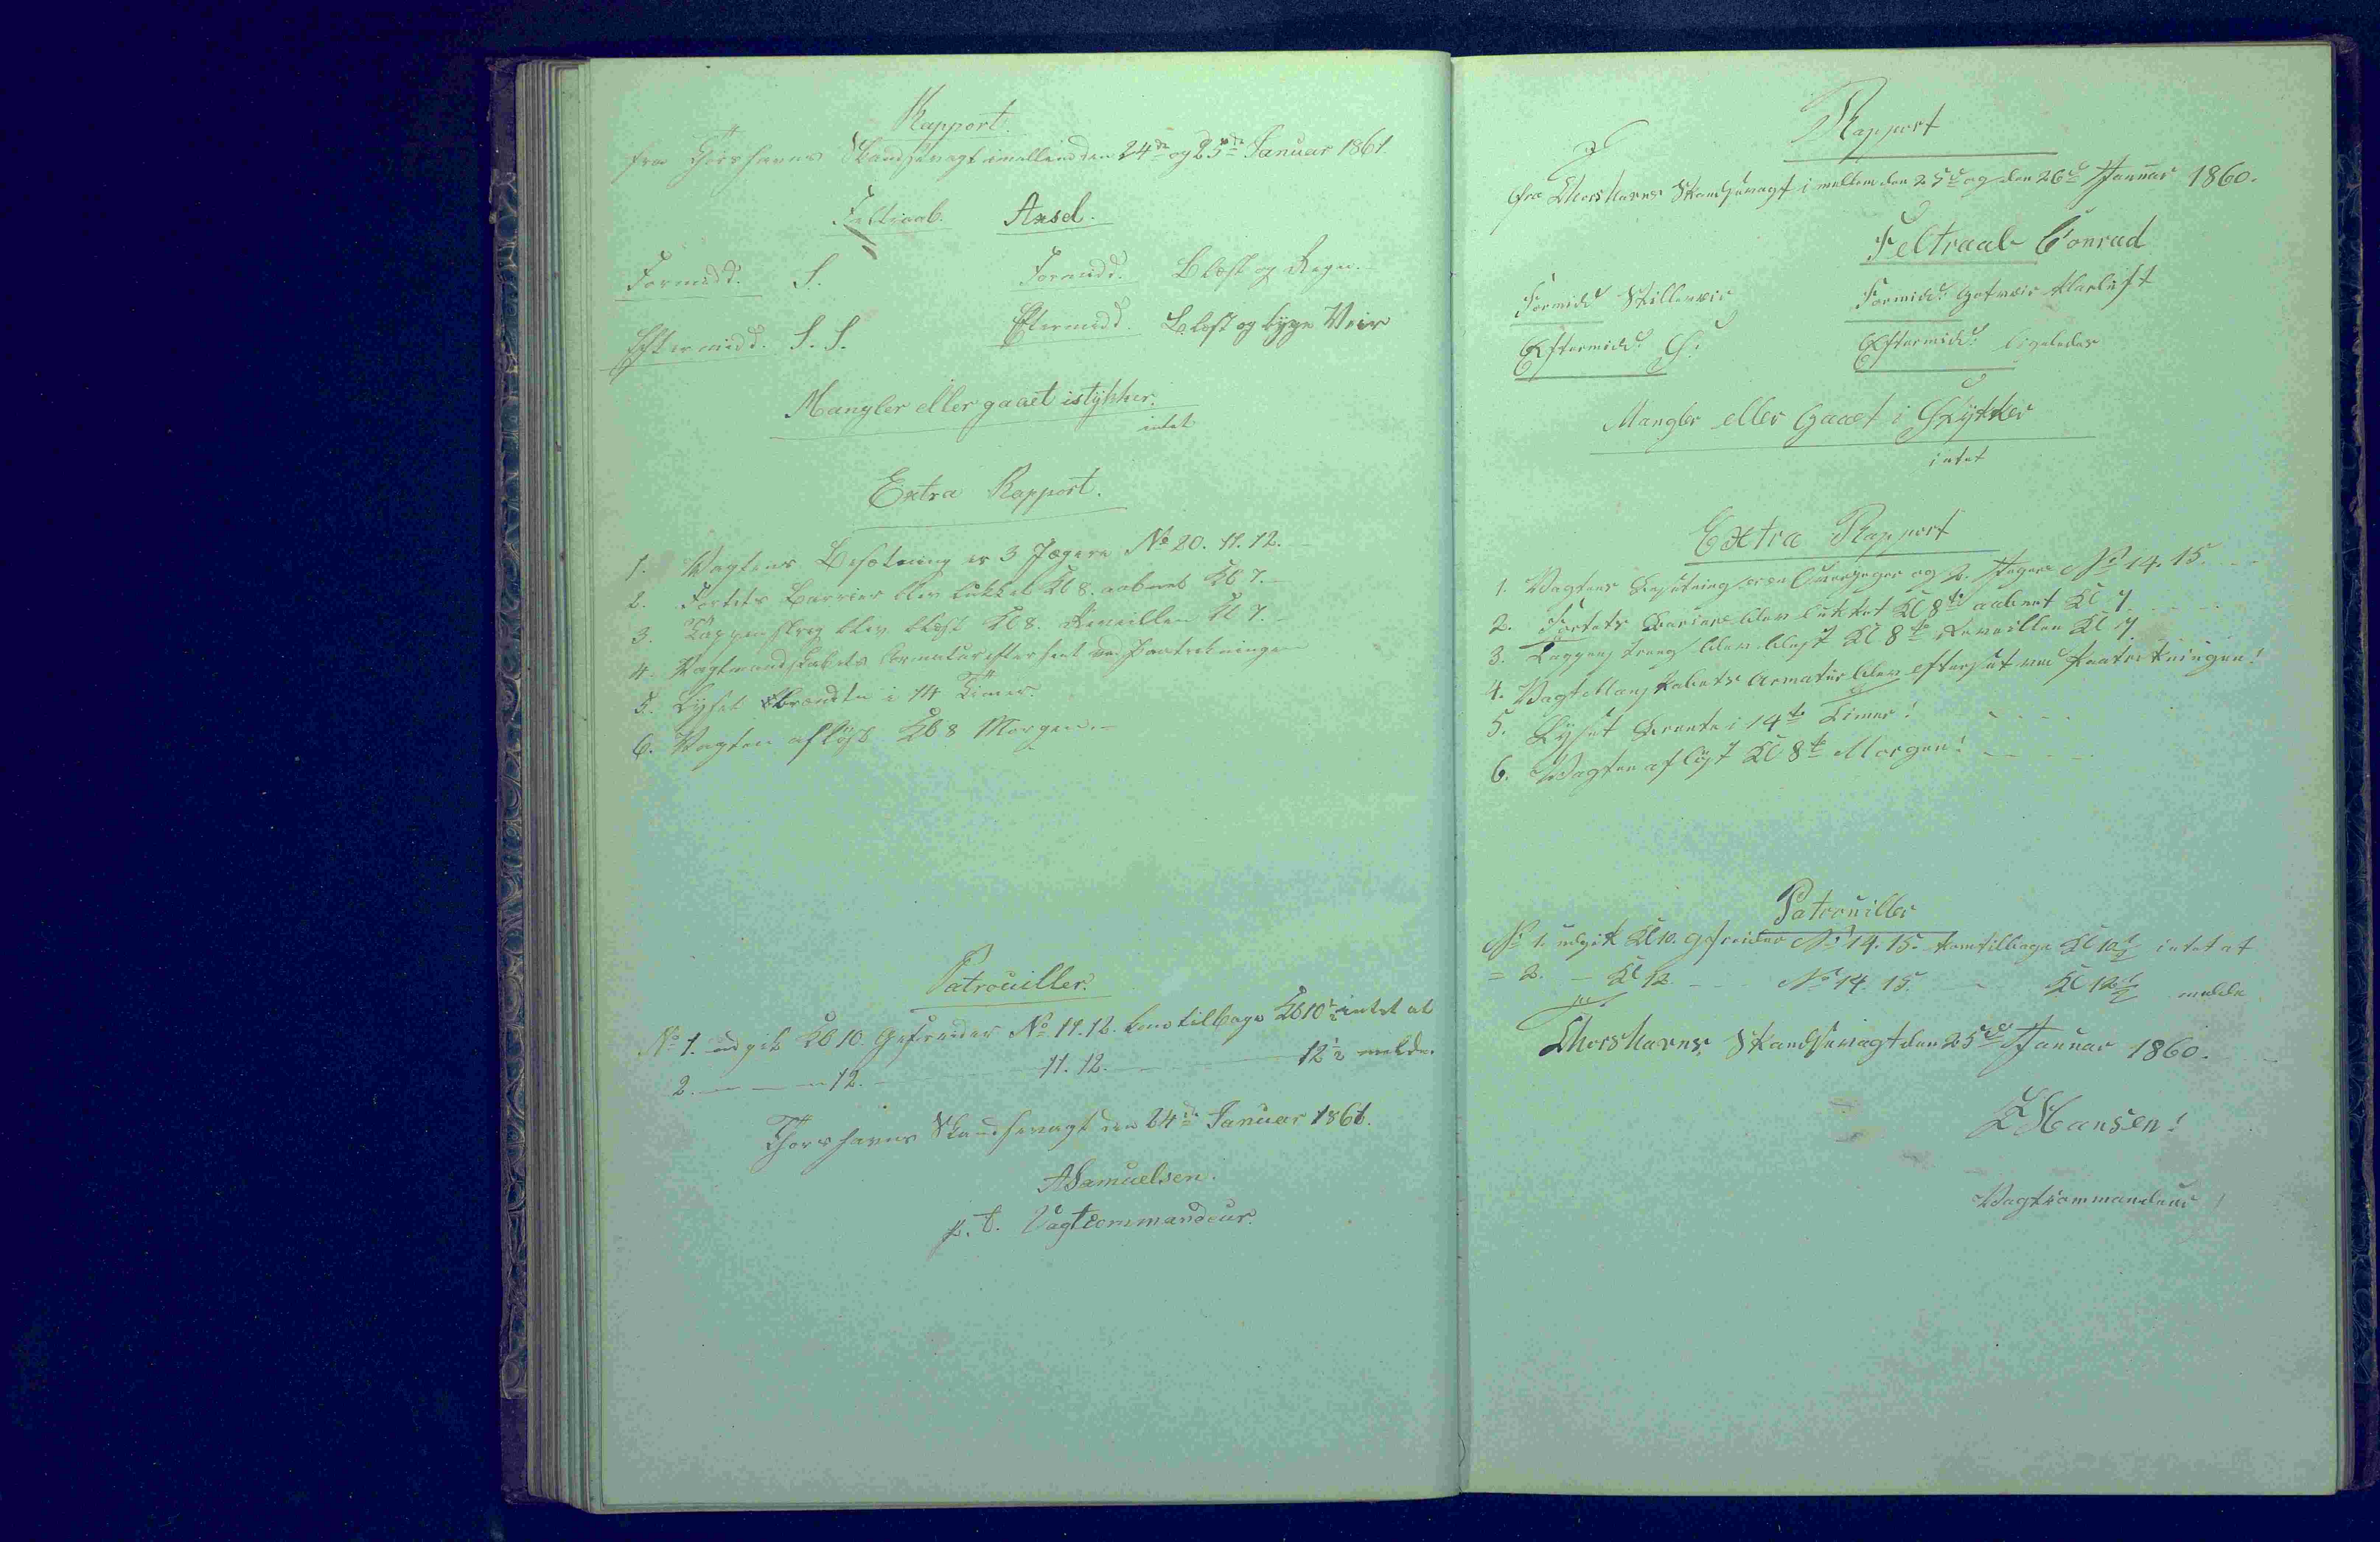 Rapport.
fra Thorshavns Skandsevagt imellem den 24de og 25de Januar 1861.
Feltraab. Axel.
Formidd. S. Formidd. Blæst og Regn.
Eftermidd. S. S. Eftermidd. Blæst og bÿge Veir
Mangler eller gaaet istÿkker.
intet
Extra Rapport.
1. Vagtens Besætning er 3 Jægere No 20. 11. 12.
2. Fortets Barrier blev lukket Kl 8. aabnet Kl 7.
3. Tappenstreg blev blæst Kl 8. Reveillen Kl 7.
4. Vagtmandskabets Armatur efterseet ved Paatrækningen
5. Lÿset brændte i 14 Timer.
6. Vagten afløst Kl 8 Morgen.
Patrouiller.
No 1. udgik Kl 10. Gefreider No 11. 12. kom tilbage Kl 10½ intet at
2. — — 12. — 11. 12. — 12½ melde.
Thorshavns Skandsevagt den 24de Januar 1861.
A Samuelsen.
p. t. Vagtcommandeur.
Rapport
fra Thorshavns Skandsevagt i mellem den 25de og den 26de Januar 1860.
Feltraab Conrad
Formidd. Stilleveir Formidd. Gotveir Klarluft
Eftermidd. S. Eftermidd. ligeledes
Mangler eller Gaaet i Stÿkker
intet
Extra Rapport
1. Vagtens Besætning er en og 2. Jegere No 14. 15.
2. Fortets Bariere blev lukket Kl 8te aabnet Kl 7
3. Tappenstreng blev blæst Kl 8te Reveillen Kl 7
4. Vagt Manskabets Armatur blev efterset ved Paatrekningen!
5. Lÿset Brente i 14te Timer!
6. Vagten afløst Kl 8te Morgen!
Patrouiller
No 1. udgik Kl 10. Gefreider No 14. 15. kom tilbage Kl 10½ intet at
= 2. — Kl 12. — No 14. 15. — Kl 12½ melde
Thorshavns Skandsevagt den 25de Januar 1860.
Hansen!
Vagtcommandeur!